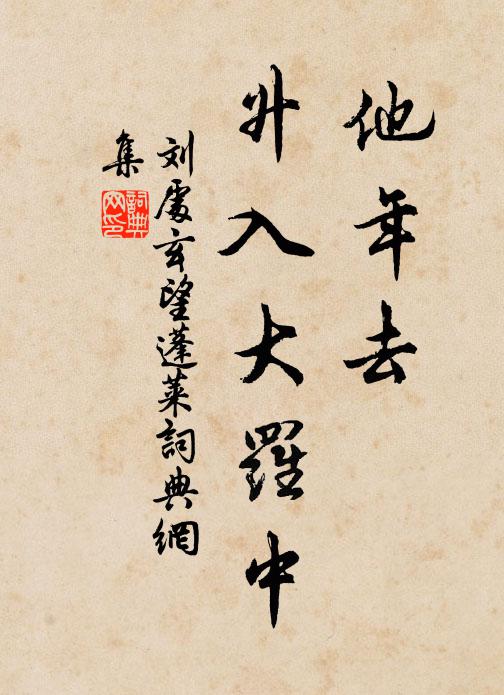 他年去
升入大羅中
刘處玄望蓬莱詞典網
集
詞典
网印